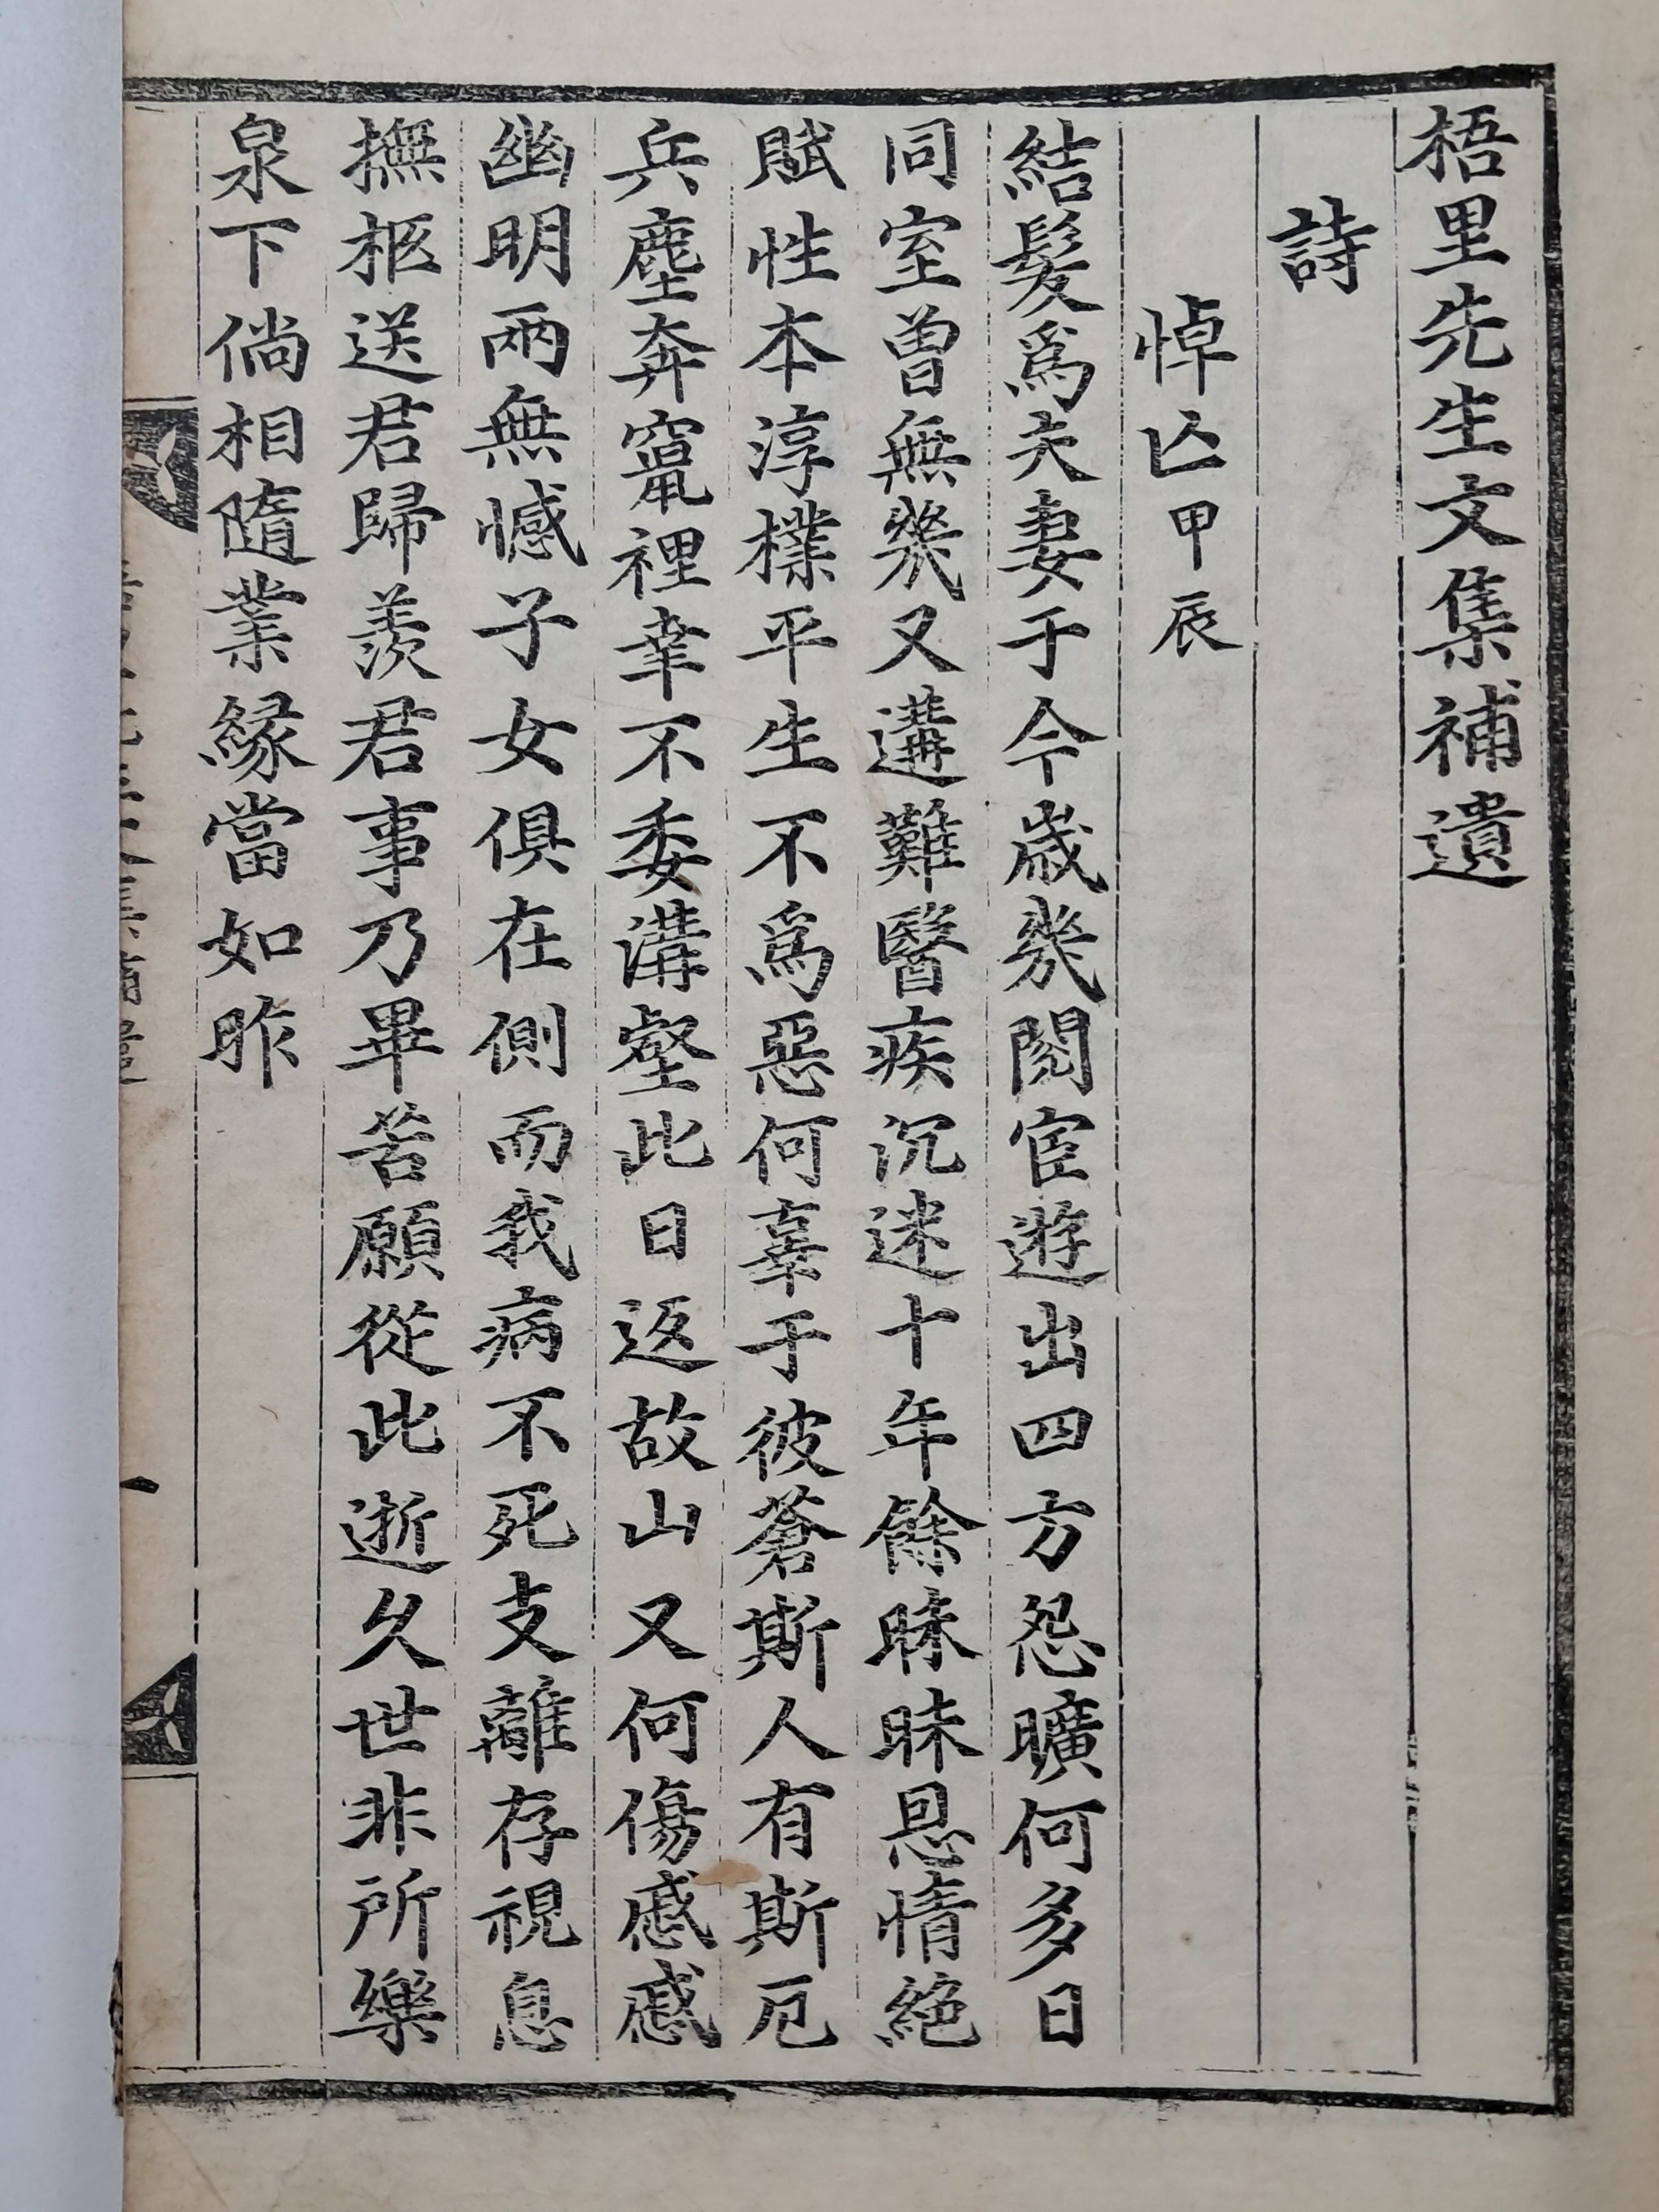 梧里先生文集補遺
詩
悼亡甲辰
結髮爲夫妻于今歲幾閱宦遊出四方怨曠何多日
同室曾無幾又遘難醫疾沉迷十年餘昧昧恩情絕
賦性本淳樸平生不爲惡何辜于彼蒼斯人有斯厄
兵塵奔竄裡幸不委溝壑此日返故山又何傷慼慼
幽明兩無憾子女俱在側而我病不死支離存視息
撫柩送君歸羨君事乃畢苦願從此逝久世非所樂
泉下倘相隨業緣當如昨